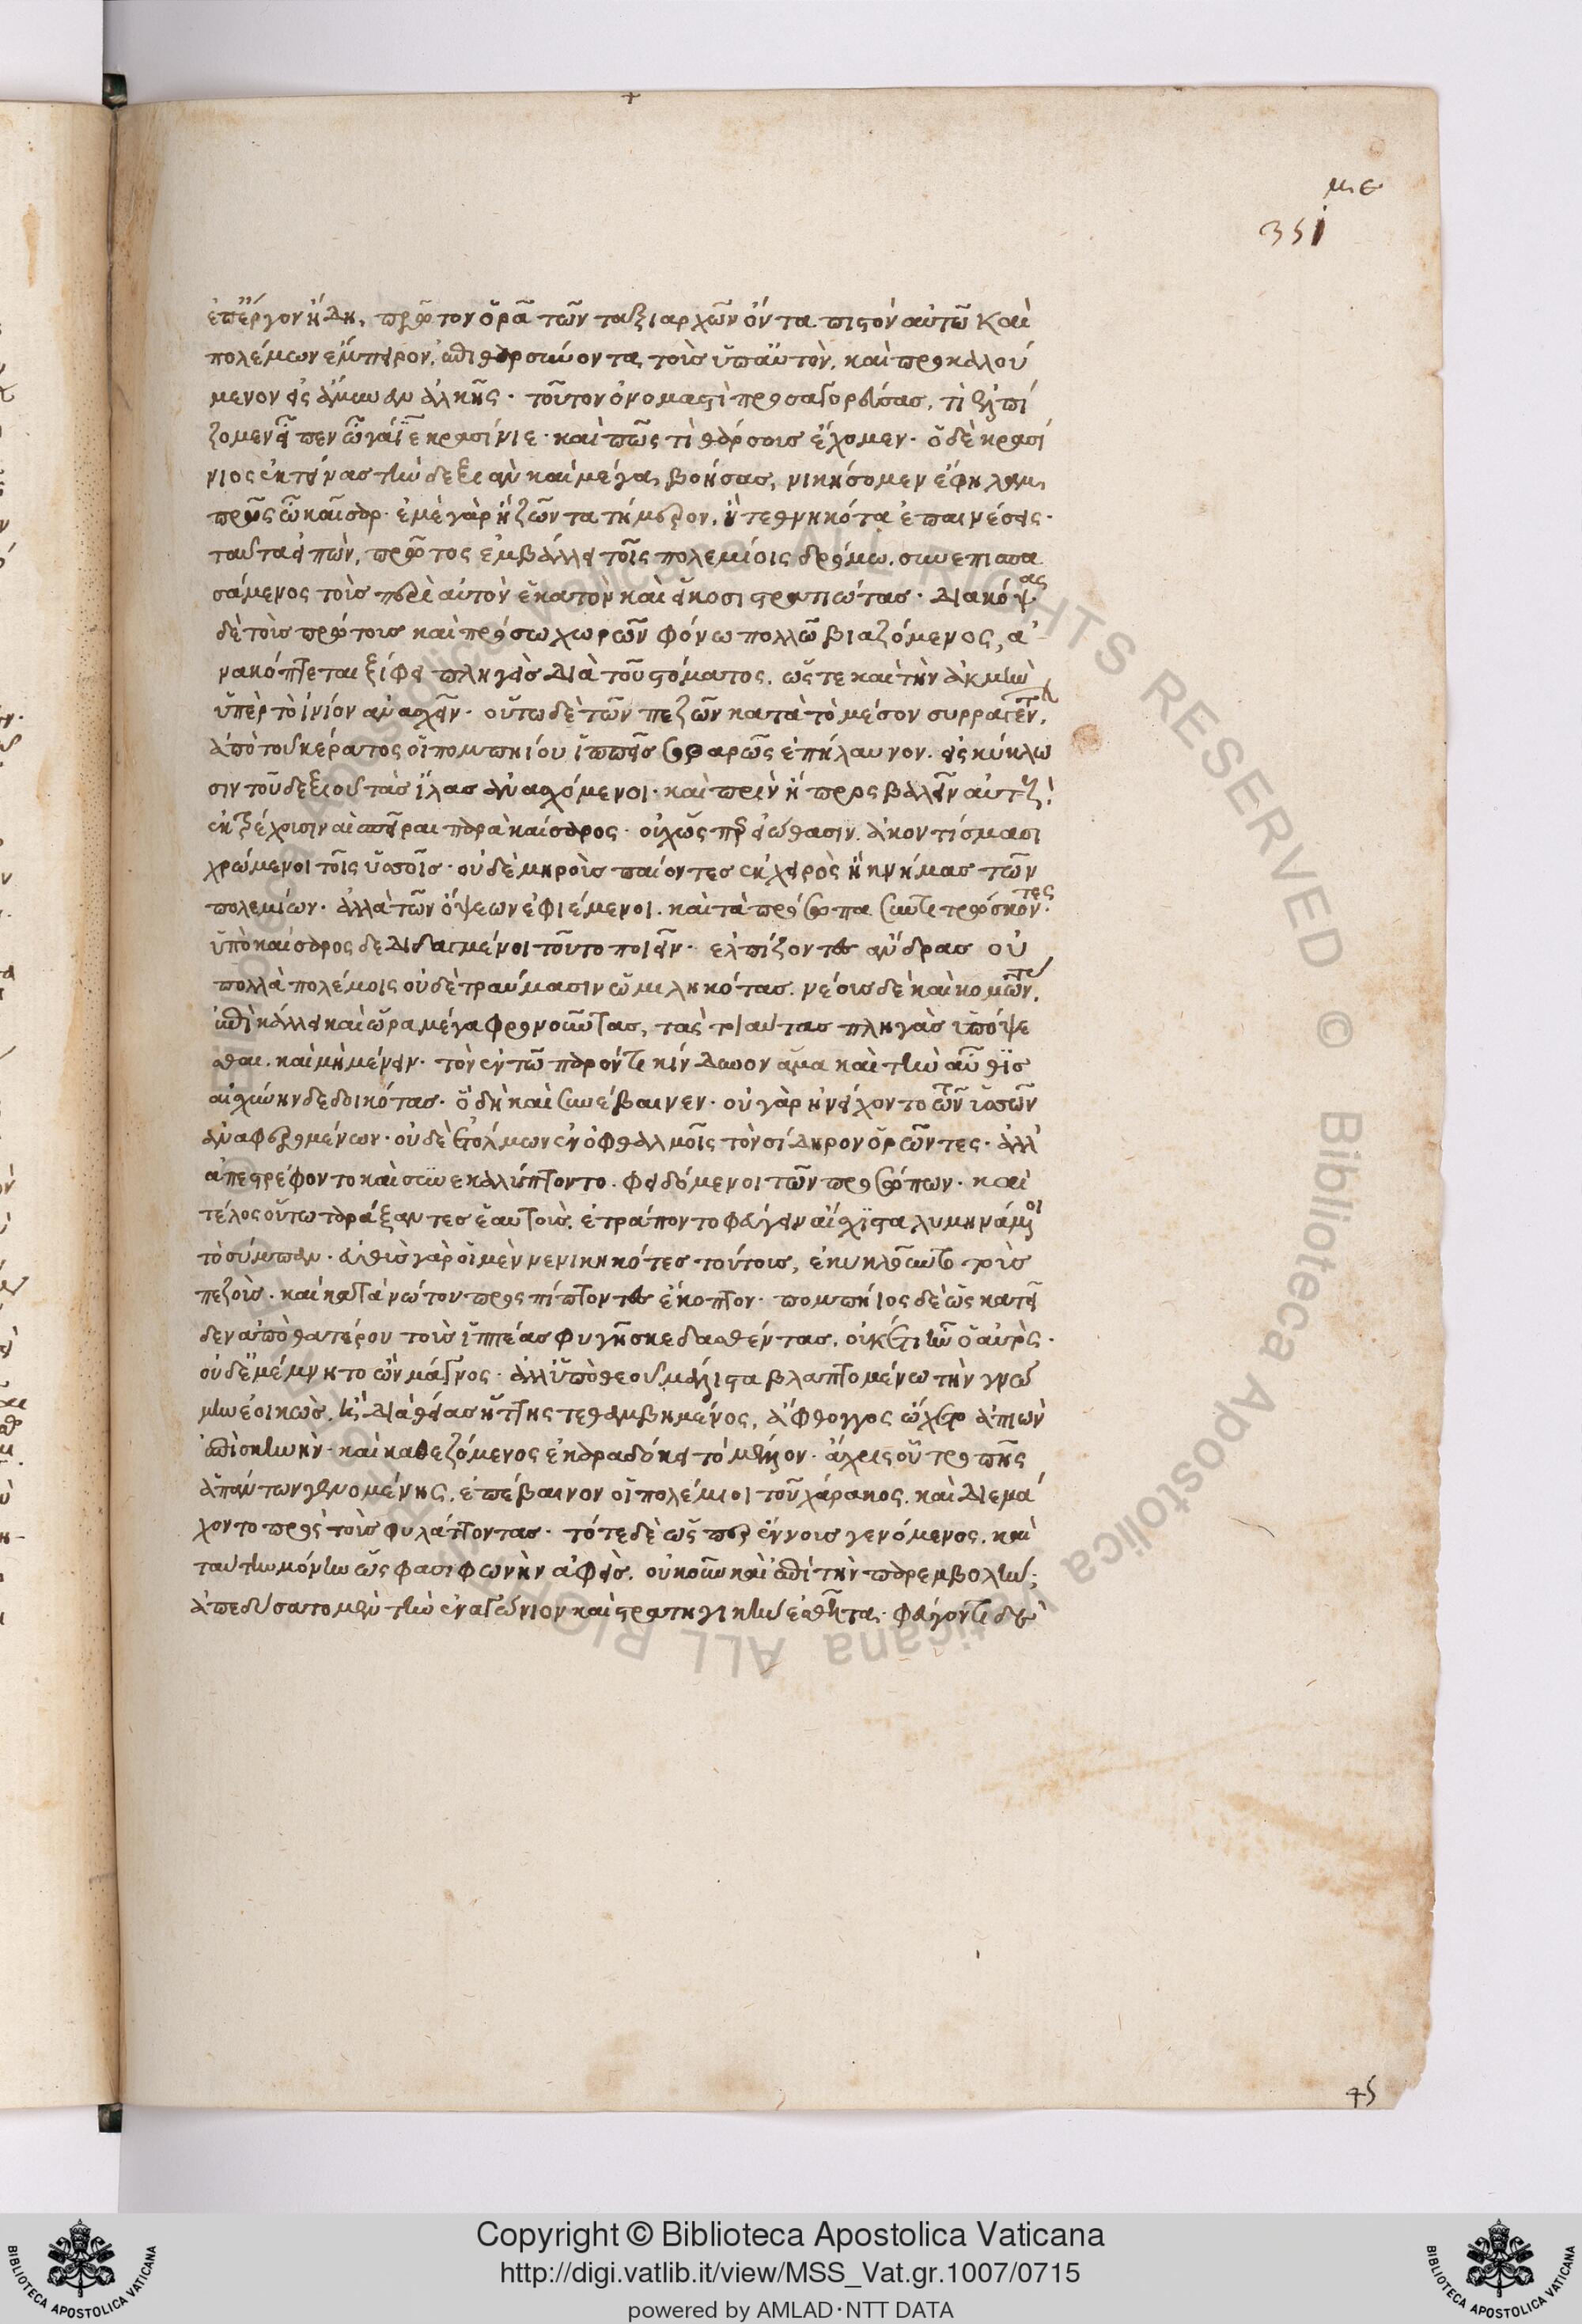 με
351
ἐπ' ἔργον ἤδη, πρῶτον ὁρᾶ τῶν ταξιαρχῶν ὄντα πιστὸν αὐτῶ καὶ
πολέμων ἔμπειρον, ἐπιθαρσύνοντα τοὺς ὑπ' αὐτὸν, καὶ προκαλού
μενον εἰς ἅμιλλαν ἀλκῆς. τοῦτον ὀνομαστὶ προσαγορεύσας, τί ἐλπί
ζομεν εἶπεν ὦ γάϊε κρασίνιε. καὶ πῶς τι θάρσους ἔχομεν. ὁ δὲ κρασί
νιος ἐκτείνας τὴν δεξιὰν καὶ μέγα βοήσας, νικήσομεν ἔφη λαμ
πρῶς ὦ καῖσαρ. ἐμὲ γὰρ ἢ ζῶντα τήμερον, ἢ τεθνηκότα ἐπαινέσεις.
ταῦτα εἰπὼν, πρῶτος ἐμβάλλει τοῖς πολεμίοις δρόμω, συνεπισπα
σάμενος τοὺς περὶ αὐτὸν ἑκατὸν καὶ εἴκοσι στρατιώτας. διακόψας
δὲ τοὺς πρώτους καὶ πρόσω χωρῶν φόνω πολλῶ βιαζόμενος, ἀ
νακόπτεται ξίφει πληγεὶς διὰ τοῦ στόματος, ὥστε καὶ τὴν ἀκμὴν
ὑπὲρ τὸ ἰνίον ἀνασχεῖν. οὕτω δὲ τῶν πεζῶν κατὰ τὸ μέσον συρραγέντων,
ἀπὸ τοῦ κέρατος οἱ πομπηίου ἱππεῖς σοβαρῶς ἐπήλαυνον. εἰς κύκλω
σιν τοῦ δεξιοῦ τὰς ἴλας ἀναχεόμενοι. καὶ πρὶν ἢ προσβαλεῖν αὐτοὺς,
ἐκτρέχουσιν αἱ σπεῖραι παρὰ καίσαρος. οὐχ ὥσπερ εἰώθασιν. ἀκοντίσμασι
χρώμενοι τοῖς ὑσσοῖς. οὐδὲ μηροὺς παίοντες ἐκ χειρὸς ἢ κνήμας τῶν
πολεμίων. ἀλλὰ τῶν ὄψεων ἐφιέμενοι. καὶ τὰ πρόσωπα συντιτρώσκοντες.
ὑπὸ καίσαρος δεδιδαγμένοι τοῦτο ποιεῖν. ἐλπίζοντος ἄνδρας οὐ
πολλὰ πολέμοις οὐδὲ τραύμασιν ὡμιληκότας. νέους δὲ καὶ κομῶντας,
ἐπὶ κάλλει καὶ ὥρα μέγα φρονοῦντας, τὰς τοιαύτας πληγὰς ὑπόψε
σθαι. καὶ μὴ μένειν. τὸν ἐν τῶ παρόντι κίνδυνον ἅμα καὶ τὴν αὖθις
αἰσχύνην δεδοικότας. ὃ δὴ καὶ συνέβαινεν. οὐ γὰρ ἠνείχοντο τῶν ὑσσῶν
ἀναφερομένων. οὐδὲ ἐτόλμων ἐν ὀφθαλμοῖς τὸν σίδηρον ὁρῶντες. ἀλλ'
ἀπεστρέφοντο καὶ συνεκαλύπτοντο. φειδόμενοι τῶν προσώπων. καὶ
τέλος οὕτω ταράξαντες ἑαυτοὺς, ἐτράποντο φεύγειν αἴσχιστα λυμηνάμενοι
τὸ σύμπαν. εὐθὺς γὰρ οἱ μὲν νενικηκότες τούτους, ἐκυκλοῦντο τοὺς
πεζοὺς. καὶ κατὰ νώτου προσπίπτοντες ἔκοπτον. πομπήιος δὲ ὡς κατεῖ
δεν ἀπὸ θατέρου τοὺς ἱππέας φυγῆ σκεδασθέντας, οὐκέτι ἦν ὁ αὐτὸς.
οὐδ' ἐμέμνητο ὢν μάγνος. ἀλλ' ὑπὸ θεοῦ μάλιστα βλαπτομένω τὴν γνώ
μην ἐοικὼς, ἢ διὰ θείας ἥττης τεθαμβημένος, ἄφθογγος ὤχετο ἀπιὼν
ἐπὶ σκηνὴν. καὶ καθεζόμενος ἐκαραδόκει τὸ μέλλον. ἄχρις οὗ τροπῆς
ἁπάντων γενομένης, ἐπέβαινον οἱ πολέμιοι τοῦ χάρακος. καὶ διεμά
χοντο πρὸς τοὺς φυλάττοντας. τότε δὲ ὥσπερ ἔννους γενόμενος. καὶ
ταύτην μόνην ὥς φασι φωνὴν ἀφεὶς. οὐκοῦν καὶ ἐπὶ τὴν παρεμβολὴν;
ἀπεδύσατο μὲν τὴν ἐναγώνιον καὶ στρατηγικὴν ἐσθῆτα. φεύγοντι δὲ
45
Copyright © Biblioteca Apostolica Vaticana
http://digi.vatlib.it/view/MSS_Vat.gr.1007/0715
powered by AMLAD·NTT DATA